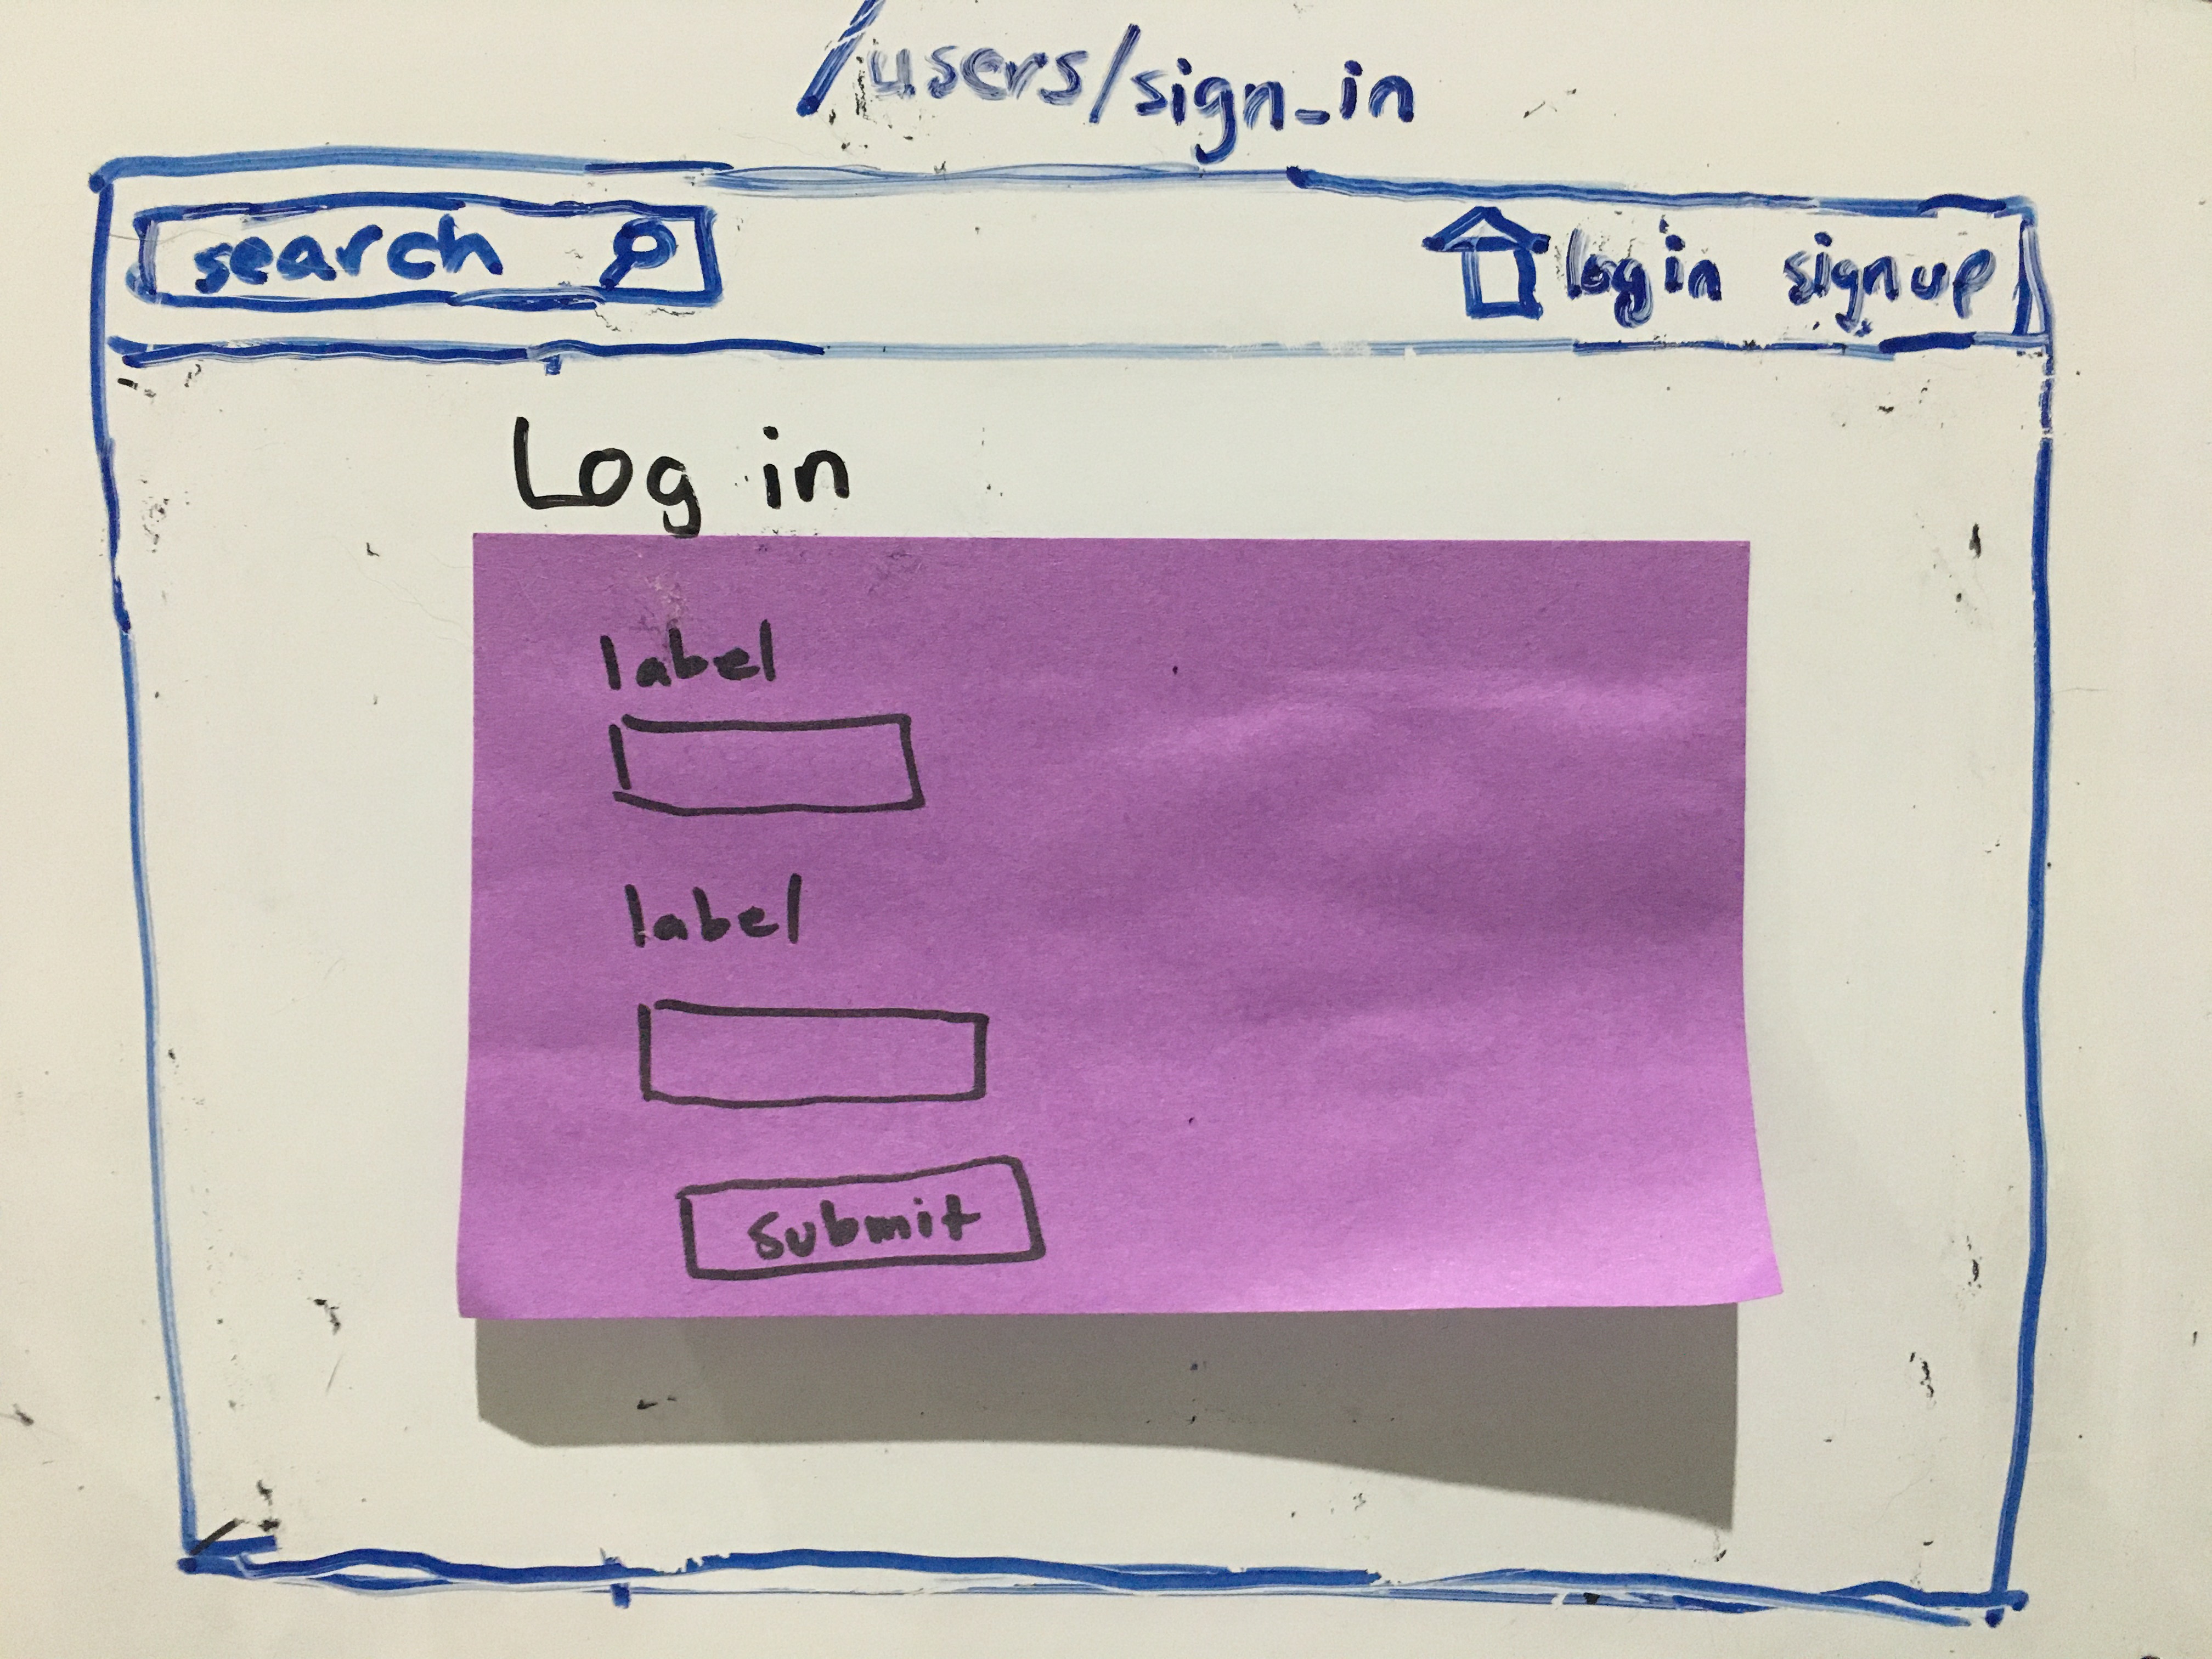 /users/sign_in
search login signup
Log in
label
label
submit